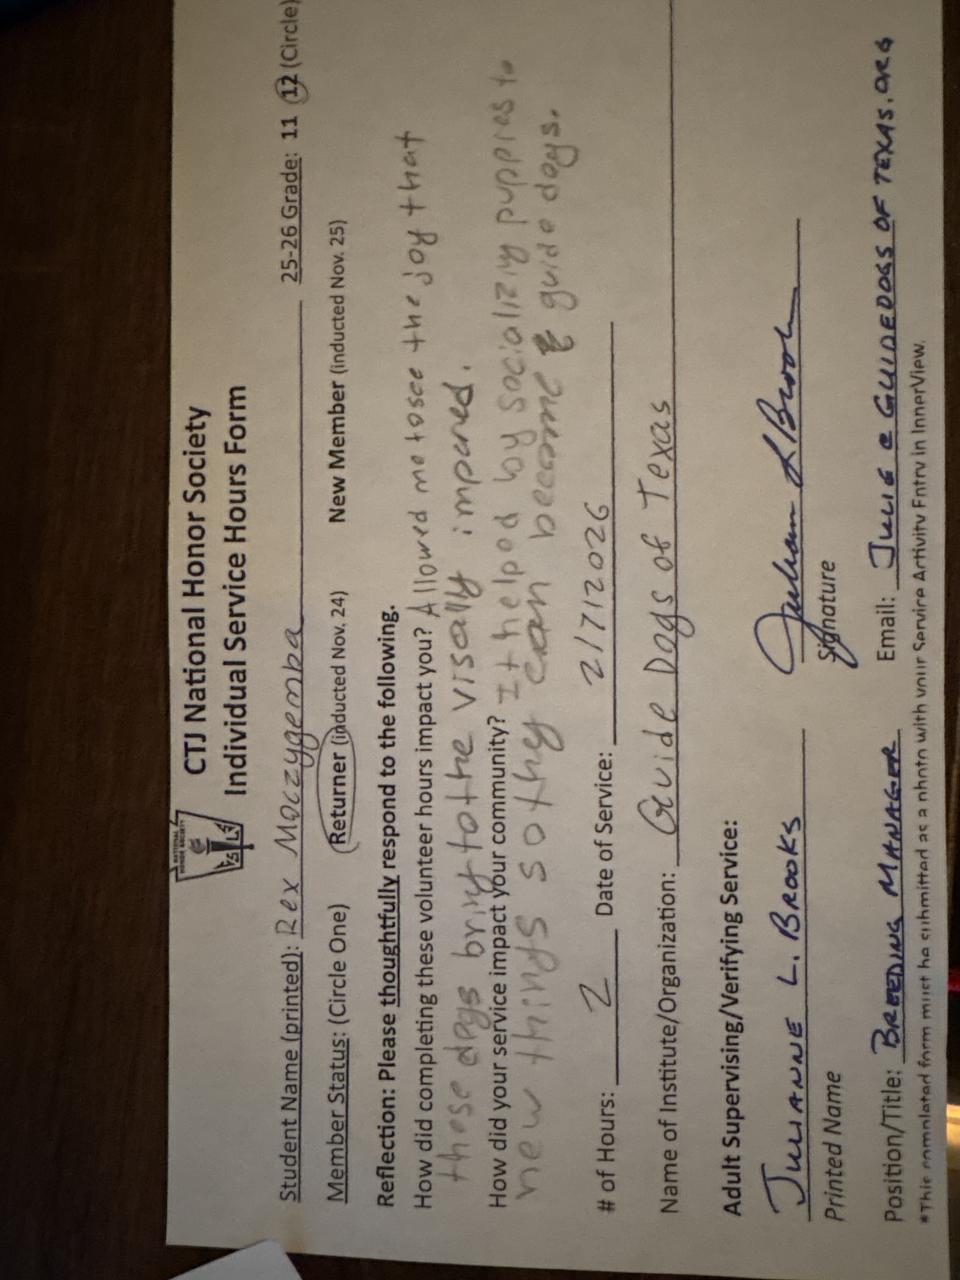 CTJ National Honor Society
Individual Service Hours Form
Student Name (printed): Rex Moczygemba 25-26 Grade: 11 12 (Circle)
Member Status: (Circle One) Returner (inducted Nov. 24) New Member (inducted Nov. 25)
Reflection: Please thoughtfully respond to the following.
How did completing these volunteer hours impact you? Allowed me to see the joy that
these dogs bring to the visally impared.
How did your service impact your community? I helped by socializing puppies to
new things so they can become guide dogs.
# of Hours: 2 Date of Service: 2/7/2026
Name of Institute/Organization: Guide Dogs of Texas
Adult Supervising/Verifying Service:
JULIANNE L. BROOKS
Printed Name Signature
Position/Title: BREEDING MANAGER Email: JULIE@GUIDEDOGSOFTEXAS.ORG
*This completed form must be submitted as a photo with your Service Activity Entry in InnerView.